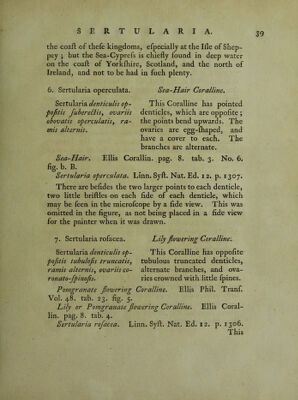 SERTULARIA. 39
the coast of these kingdoms, especially at the Isle of Shep-
pey ; but the Sea-Cypress is chiefly found in deep water
on the coast of Yorkshire, Scotland, and the north of
Ireland, and not to had in such plenty.
6. Sertularia operculata. Sea-Hair Coralline.
Sertularia denticulis op-
positis suberectis, ovariis
obovatis operculatis, ra-
mis alternis.
This Coralline has pointed
denticles, which are opposite ;
the points bend upwards. The
ovaries are egg-shaped, and
have a cover to each. The
branches are alternate.
Sea-Hair. Ellis Corallin. pag. 8. tab. 3. No. 6.
fig. b. B.
Sertularia operculata. Linn. Syst. Nat. Ed. 12. p. 1307.
There are besides the two larger points to each denticle,
two little bristles on each side of each denticle, which
may be seen in the microscope by a side view. This was
omitted in the figure, as not being placed in a side view
for the painter when it was drawn.
7. Sertularia rosacea. Lily flowering Coralline.
Sertularia denticulis op-
positis tubulosis truncatis,
ramis alternis, ovariis co-
ronato-spinosis.
This Coralline has opposite
tubulous truncated denticles,
alternate branches, and ova-
ries crowned with little spines.
Pomegranate flowering Coralline. Ellis Phil. Trans.
Vol. 48. tab. 23. fig. 5.
Lily or Pomgranate flowering Coralline. Ellis Coral-
lin. pag. 8. tab. 4.
Sertularia rosacea. Linn. Syst. Nat. Ed. 12. p. 1306.
This